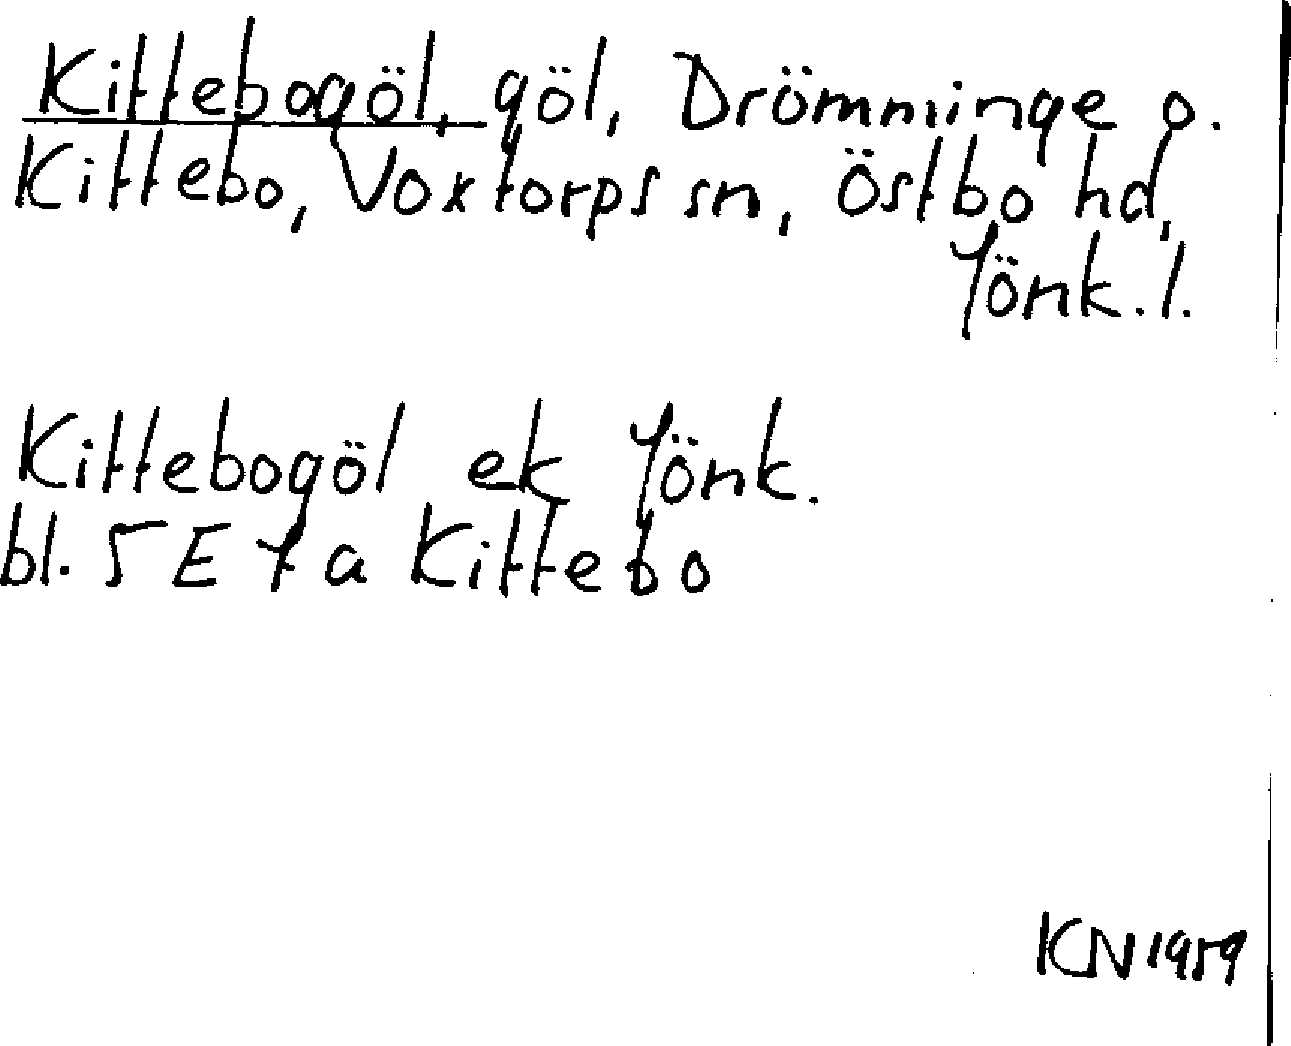 Kittebogöl, göl, Drömminge o.
Kittebo, Voxtorps sn, Östbo hd,
Jönk. l.
Kittebogöl ek Jönk.
bl. 5 E f a Kittebo
KN 1959